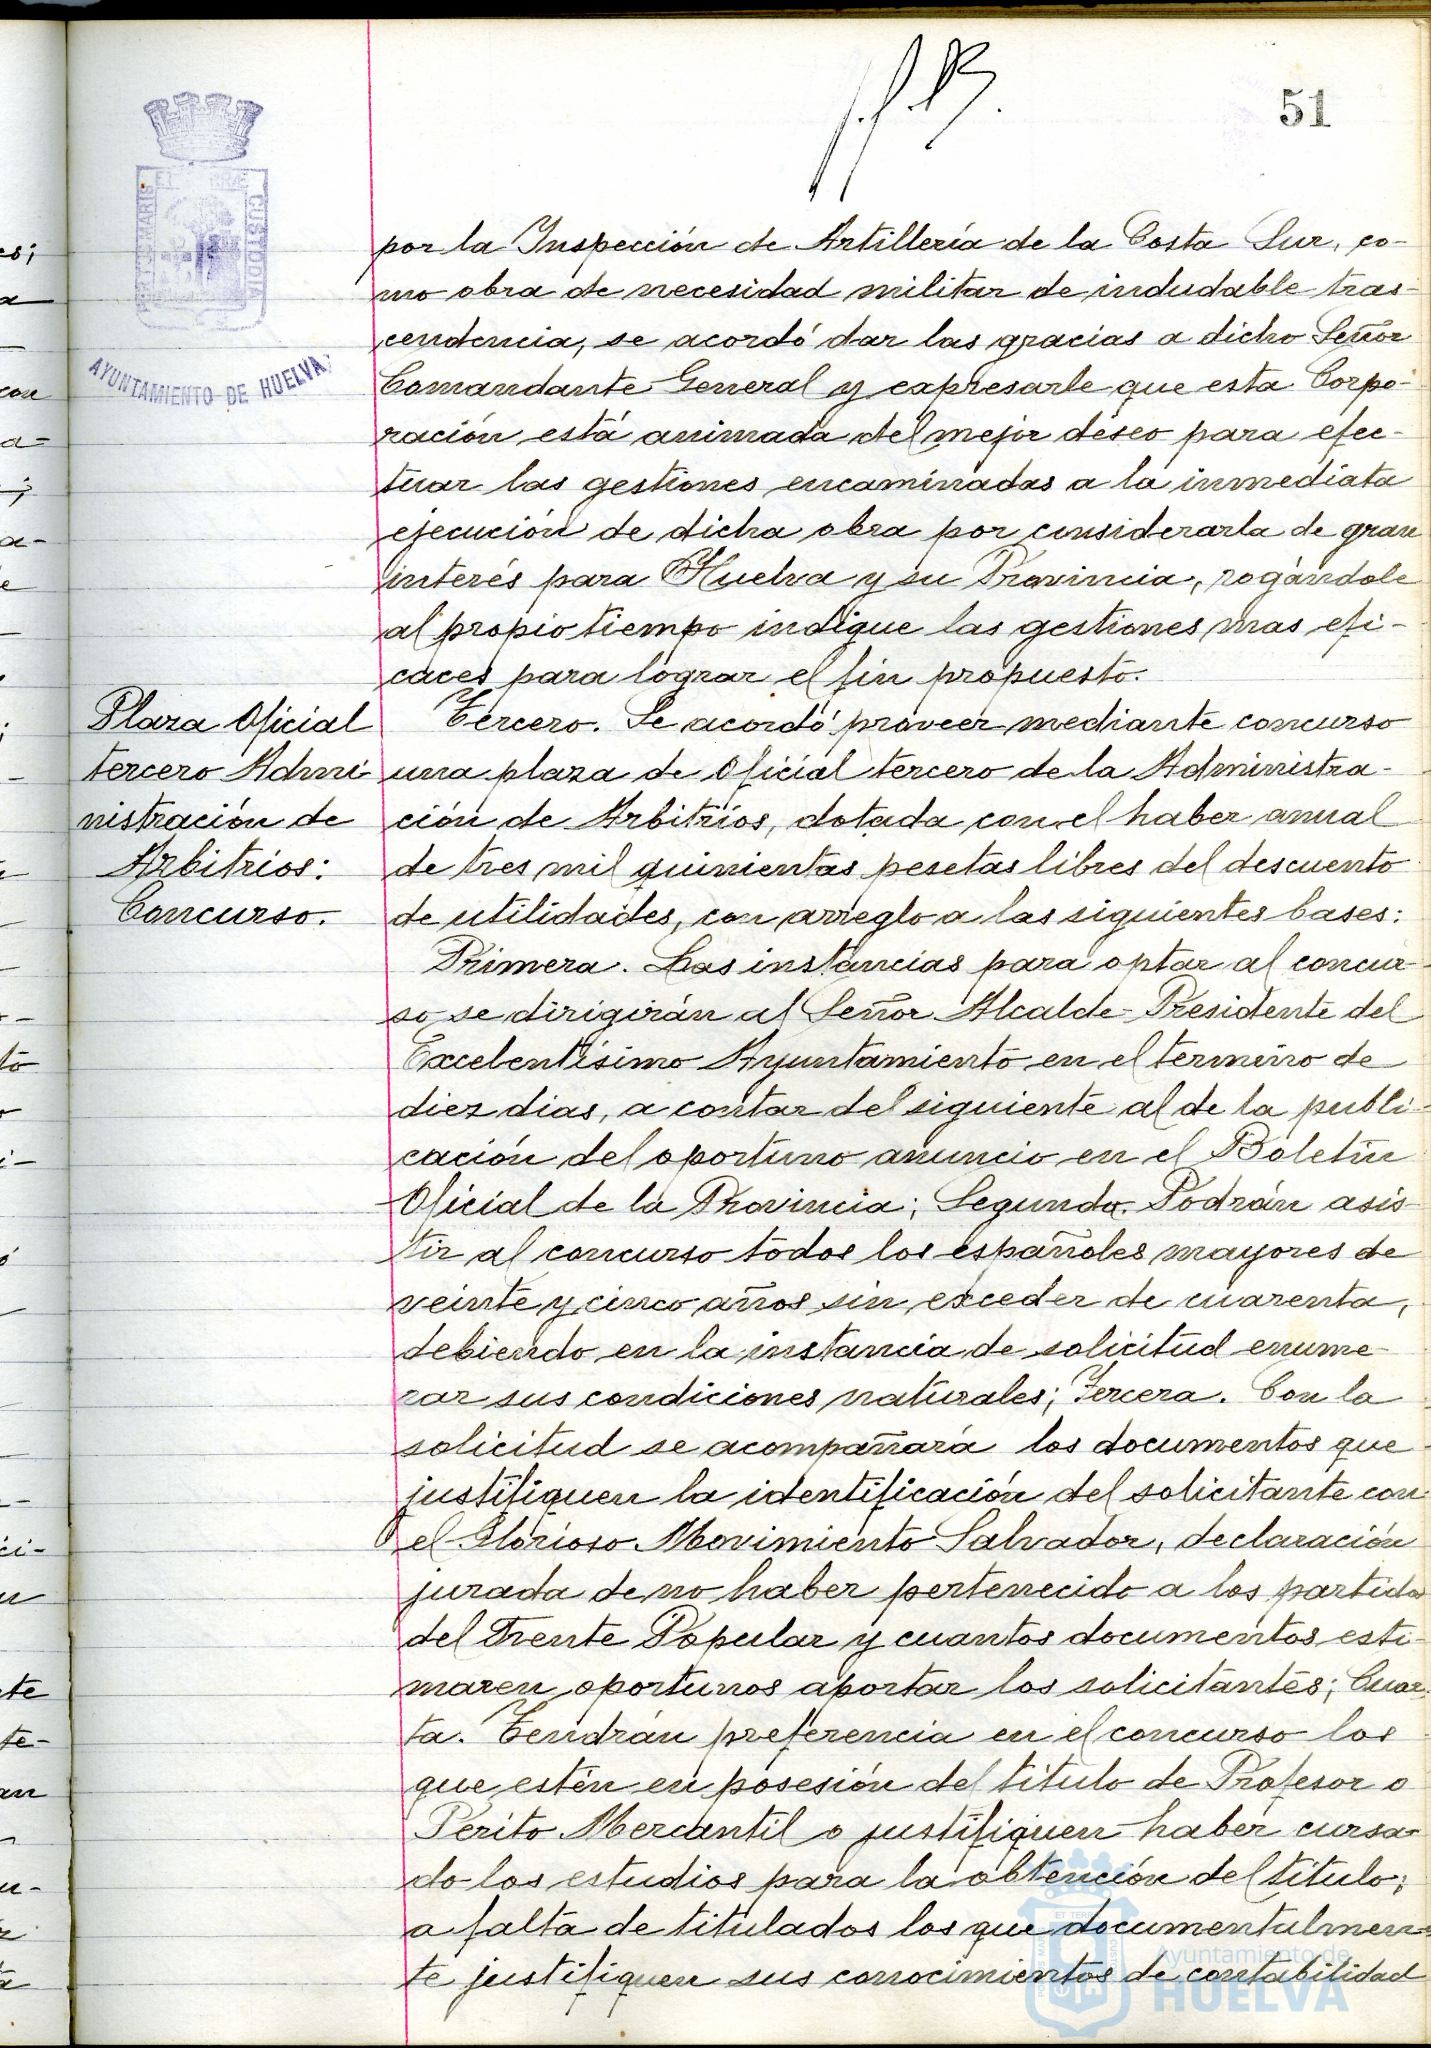 51
PORTUS MARIS ET TERRAE CUSTODIA
AYUNTAMIENTO DE HUELVA
por la Inspección de Artillería de la Costa Sur, co-
mo obra de necesidad militar de indudable tras-
cendencia, se acordó dar las gracias a dicho Señor
Comandante General y expresarle que esta Corpo-
ración está animada del mejor deseo para efec-
tuar las gestiones encaminadas a la inmediata
ejecución de dicha obra por considerarla de gran
interés para Huelva y su Provincia, rogándole
al propio tiempo indique las gestiones mas efi-
caces para lograr el fin propuesto.
Plaza Oficial
tercero Admi
nistración de
Arbitrios:
Concurso.
Tercero. Se acordó proveer mediante concurso
una plaza de Oficial tercero de la Administra-
ción de Arbitrios, dotada con el haber anual
de tres mil quinientas pesetas libres del descuento
de utilidades, con arreglo a las siguientes bases:
Primera. Las instancias para optar al concur-
so se dirigirán al Señor Alcalde-Presidente del
Excelentísimo Ayuntamiento en el termino de
diez dias, a contar del siguiente al de la publi-
cación del oportuno anuncio en el Boletín
Oficial de la Provincia; Segunda. Podrán asis-
tir al concurso todos los españoles mayores de
veinte y cinco años sin exceder de cuarenta,
debiendo en la instancia de solicitud enume-
rar sus condiciones naturales; Tercera. Con la
solicitud se acompañará los documentos que
justifiquen la identificación del solicitante con
el Glorioso Movimiento Salvador, declaración
jurada de no haber pertenecido a los partidos
del Frente Popular y cuantos documentos esti-
maren oportunos aportar los solicitantes; Cuar-
ta. Tendrán preferencia en el concurso los
que estén en posesión del título de Profesor o
Perito Mercantil o justifiquen haber cursa-
do los estudios para la obtención del título;
a falta de titulados los que documentalmen-
te justifiquen sus conocimientos de contabilidad
Ayuntamiento de
HUELVA